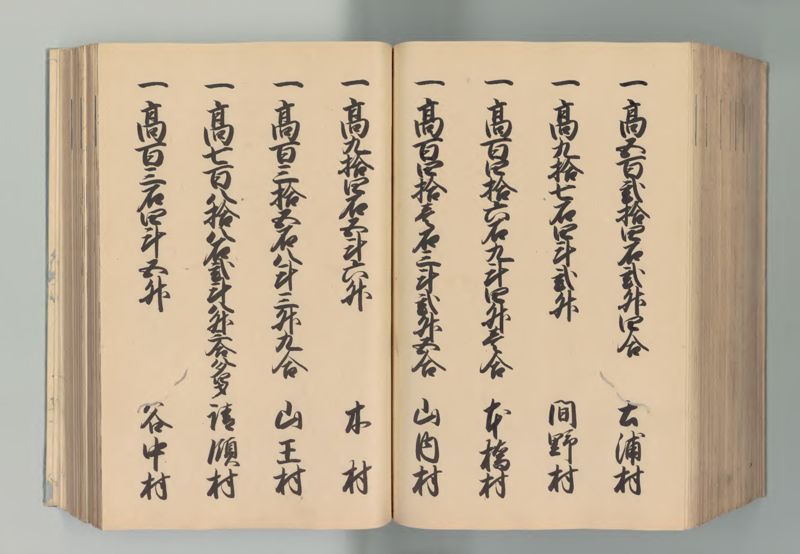 一 高五百弐拾四石弐升四合 大浦村
一 高九拾七石四斗弐升 間野村
一 高百四拾六石九斗四升壱合 本橋村
一 高百四拾壱石三斗弐升五合 山内村
一 高九拾四石五斗六升 本村
一 高百三拾五石八斗三升九合 山王村
一 高七百八拾八石弐斗八升二合 請願村
一 高百三石四斗五升 谷中村